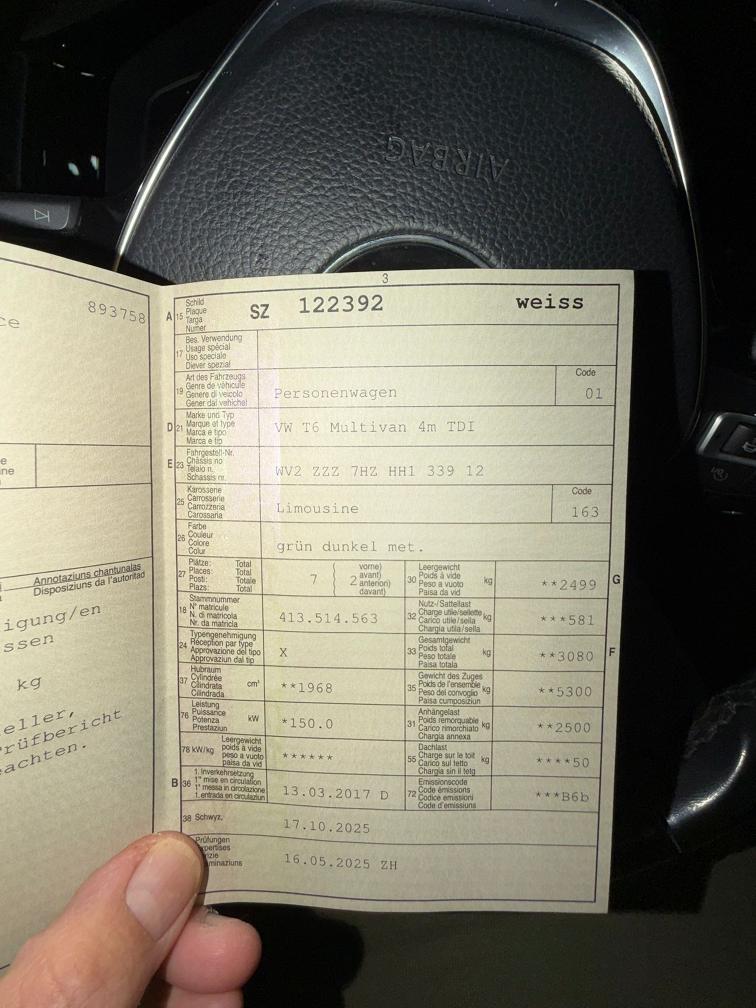 AIRBAG
ce
893758
e
ne
Annotaziuns chantunalas
Disposiziuns da l'autoritad
igung/en
ssen
kg
eller,
rüfbericht
achten.
3
A 15 Schild
Plaque
Targa
Numer
SZ 122392 weiss
17 Bes. Verwendung
Usage spécial
Uso speciale
Diever spezial
19 Art des Fahrzeugs
Genre de véhicule
Genere di veicolo
Gener dal vehichel
Personenwagen
Code
01
D 21 Marke und Typ
Marque et type
Marca e tipo
Marca e tip
VW T6 Multivan 4m TDI
E 23 Fahrgestell-Nr.
Châssis no
Telaio n.
Schassis nr.
WV2 ZZZ 7HZ HH1 339 12
25 Karosserie
Carrosserie
Carrozzeria
Carossaria
Limousine
Code
163
26 Farbe
Couleur
Colore
Colur
grün dunkel met.
27 Plätze: Total
Places: Total
Posti: Totale
Plazs: Total
7 ( 2 vorne)
avant)
anteriori)
davant)
30 Leergewicht
Poids à vide
Peso a vuoto
Paisa da vid
kg
**2499
G
18 Stammnummer
N° matricule
N. di matricola
Nr. da matricla
413.514.563
32 Nutz-/Sattellast
Charge utile/sellette
Carico utile/sella
Chargia utila/sella
kg
***581
24 Typengenehmigung
Réception par type
Approvazione del tipo
Approvaziun dal tip
X
33 Gesamtgewicht
Poids total
Peso totale
Paisa totala
kg
**3080
F
37 Hubraum
Cylindrée
Cilindrata
Cilindrada
cm³
**1968
35 Gewicht des Zuges
Poids de l'ensemble
Peso del convoglio
Paisa cumposiziun
kg
**5300
76 Leistung
Puissance
Potenza
Prestaziun
kW
*150.0
31 Anhängelast
Poids remorquable
Carico rimorchiato
Chargia annexa
kg
**2500
78 kW/kg Leergewicht
poids à vide
peso a vuoto
paisa da vid
******
55 Dachlast
Charge sur le toit
Carico sul tetto
Chargia sin il tetg
kg
****50
B 36 1. Inverkehrsetzung
1re mise en circulation
1a messa in circolazione
1. entrada en circulaziun
13.03.2017 D
72 Emissionscode
Code émissions
Codice emissioni
Code d'emissiuns
***B6b
38 Schwyz,
17.10.2025
Prüfungen
xpertises
minaziuns
16.05.2025 ZH